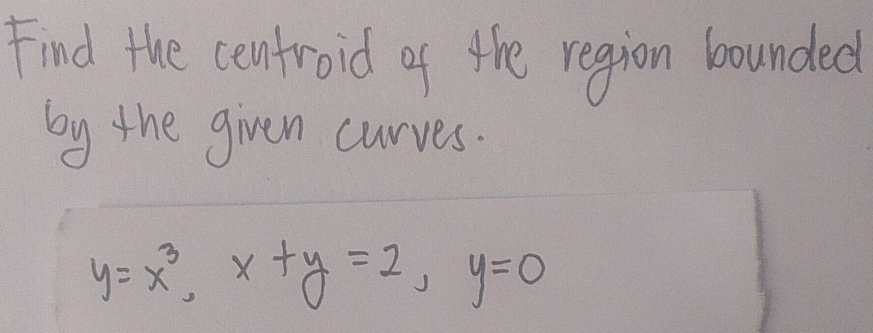 Find the centroid of the region bounded
by the given curves.
y=x³, x+y=2, y=0